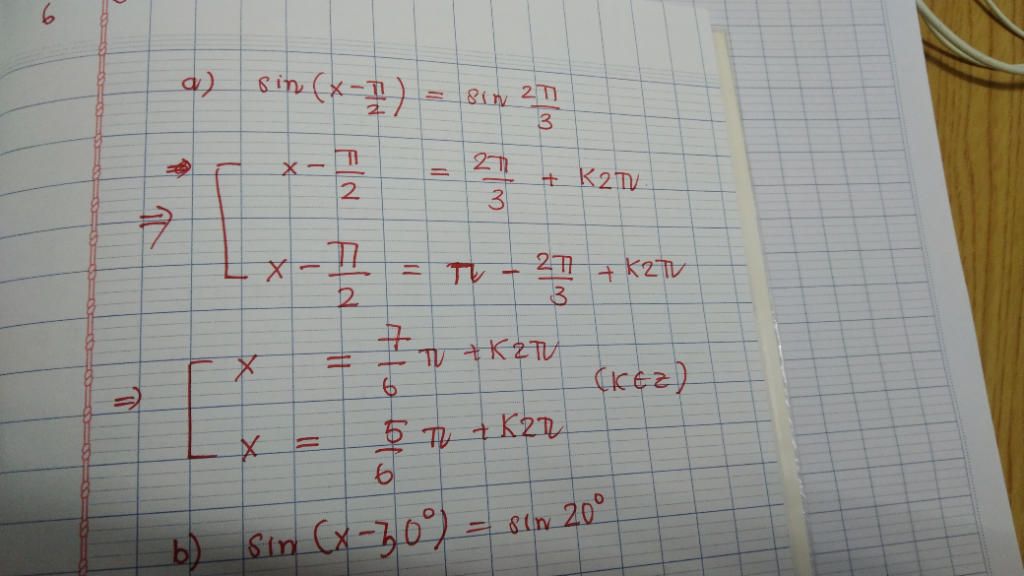 6
a) sin(x - π/2) = sin 2π/3
⇒ [ x - π/2 = 2π/3 + K2π
x - π/2 = π - 2π/3 + K2π
⇒ [ x = 7/6 π + K2π
(K∈Z)
x = 5/6 π + K2π
b) sin (x - 30°) = sin 20°